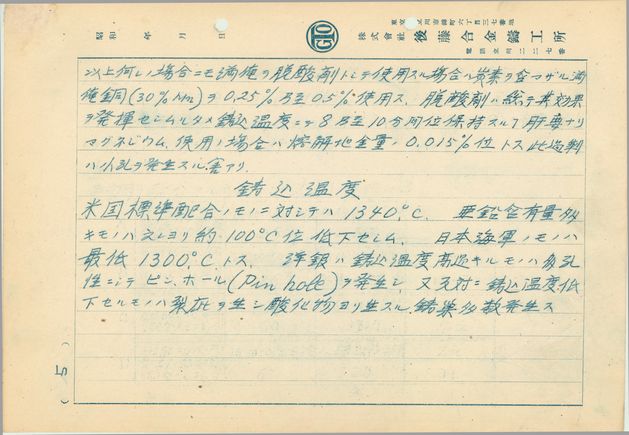 昭和 年 月 日
GTO
東京 立川市錦町六丁目三七番地
株式會社 後藤合金鑄工所
電話立川二二七番
以上何レノ場合ニモ満俺ヲ脱酸剤トシテ使用スル場合ハ炭素ヲ含マザル満
俺銅(30%Mn)ヲ0.25%乃至0.5%使用ス. 脱酸剤ハ総テ其効果
ヲ発揮セシムルタメ鋳込温度ニテ8乃至10分間位保持スルヿ肝要ナリ
マグネジウム使用ノ場合ハ熔解地金量ノ0.015%位トス此過剰
ハ小孔ヲ発生スル害アリ.
鋳込温度
米国標準配合ノモノニ対シテハ1340°C. 亜鉛含有量多
キモノハ之レヨリ約100°C位低下セシム. 日本海軍ノモノハ
最低1300°Cトス. 洋銀ハ鋳込温度高過キルモノハ多孔
性ニシテピン,ホール(Pin hole)ヲ発生シ,又反対ニ鋳込温度低
下セルモノハ裂疵ヲ生シ酸化物ヨリ生スル鋳巣多数発生ス
(5)